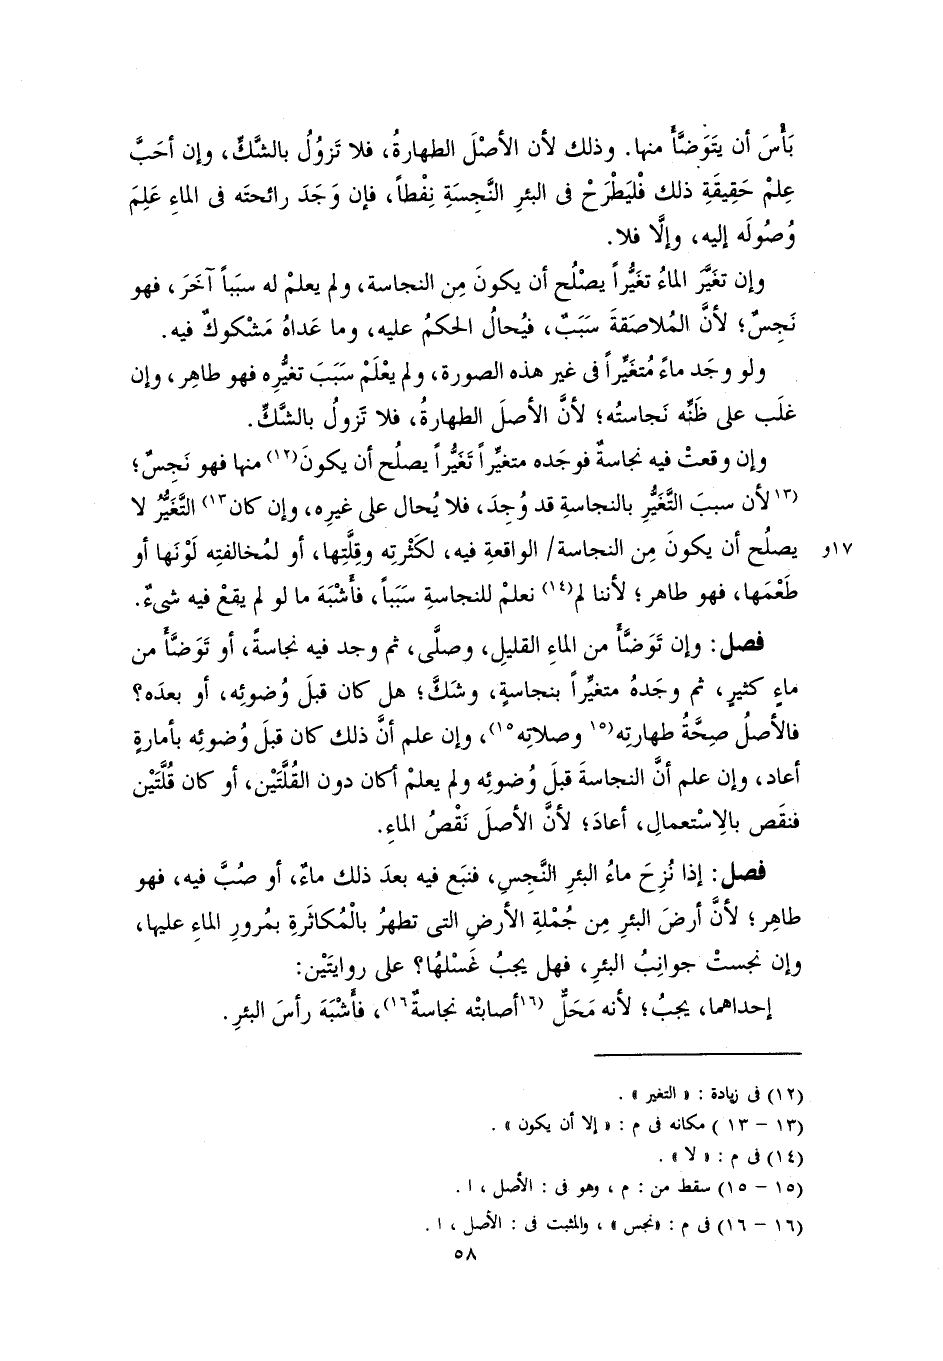 بَأْسَ أن يتَوَضَّأَ منها. وذلك لأن الأصْلَ الطهارةُ، فلا تَزولُ بالشَّكِّ، وإن أحَبَّ
عِلمْ حَقِيقَةِ ذلك فْليَطْرَحْ فى البئرِ النَّجِسَةِ نِفْطاً، فإن وَجَدَ رائحتَه فى الماءِ عَلِمَ
وُصُولَه إليه، وإلَّا فلا.
وإن تغَيَّرَ الماءُ تغَيُّراً يصْلُح أن يكونَ مِن النجاسة، ولم يعلمْ له سبَباً آخَرَ، فهو
نَجِسٌ؛ لأنَّ المُلاصَقةَ سَبَبٌ، فيُحالُ الحكمُ عليه، وما عَداهُ مَشْكوكٌ فيه.
ولو وجَد ماءً مُتغَيِّراً فى غير هذه الصورة، ولم يعْلَمْ سَبَبَ تغيُّره فهو طاهِر، وإن
غلَب على ظَنِّه نَجاستُه؛ لأنَّ الأصلَ الطهارةُ، فلا تَزولُ بالشَّكِّ.
وإن وقعتْ فيه نجاسةٌ فوجَده متغيِّراً تَغَيُّراً يصلُح أن يكونَ(١٢) منها فهو نَجِسٌ؛
(١٣لأن سببَ التَّغَيُّرِ بالنجاسةِ قد وُجِدَ، فلا يُحال على غيرِه، وإن كان١٣) التَّغَيُّرُ لا
يصلُح أن يكونَ مِن النجاسة/ الواقعةِ فيه، لكَثْرتِه وقِلَّتِها، أو لمُخالفتِه لَوْنَها أو ١٧و
طَعْمَها، فهو طاهر؛ لأننا لم(١٤) نعلمْ للنجاسةِ سَبَباً، فأَشْبَهَ ما لو لم يقعْ فيه شىءٌ.
فصل: وإن تَوَضَّأَ من الماءِ القليلِ، وصلَّى، ثم وجد فيه نجاسةً، أو تَوَضَّأَ من
ماءٍ كثيرٍ، ثم وجَدهُ متغيِّراً بنجاسةٍ، وشَكَّ؛ هل كان قبلَ وُضوئِه، أو بعدَه؟
فالأصلُ صِحَّةُ طهارتِه(١٥ وصلاتِه١٥)، وإن علم أنَّ ذلك كان قبلَ وُضوئِه بأمارةٍ
أعاد، وإن علم أنَّ النجاسةَ قبلَ وُضوئِه ولم يعلمْ أكان دون القُلَّتَيْنِ، أو كان قُلَّتَيْنِ
فنقَص بالِاسْتعمالِ، أعادَ؛ لأنَّ الأصلَ نَقْصُ الماءِ.
فصل: إذا نُزِحَ ماءُ البئرِ النَّجِسِ، فنبَع فيه بعدَ ذلك ماءٌ، أو صُبَّ فيه، فهو
طاهِر؛ لأنَّ أرضَ البئرِ مِن جُمْلةِ الأرضِ التى تطهرُ بالْمُكاثَرةِ بمُرورِ الماءِ عليها،
وإن نجستْ جوانِبُ البئرِ، فهل يجبُ غَسْلهُا؟ على روايتَيْن:
إحداهما، يجبُ؛ لأنه مَحَلٌّ (١٦أصابتْه نجاسةٌ١٦)، فأَشْبَهَ رأسَ البئرِ.
(١٢) فى زيادة: «التغير».
(١٣ - ١٣) مكانه فى م: «إلا أن يكون».
(١٤) فى م: «لا».
(١٥ - ١٥) سقط من: م، وهو فى: الأصل، ا.
(١٦ - ١٦) فى م: «نجس»، والمثبت فى: الأصل، ا.
٥٨